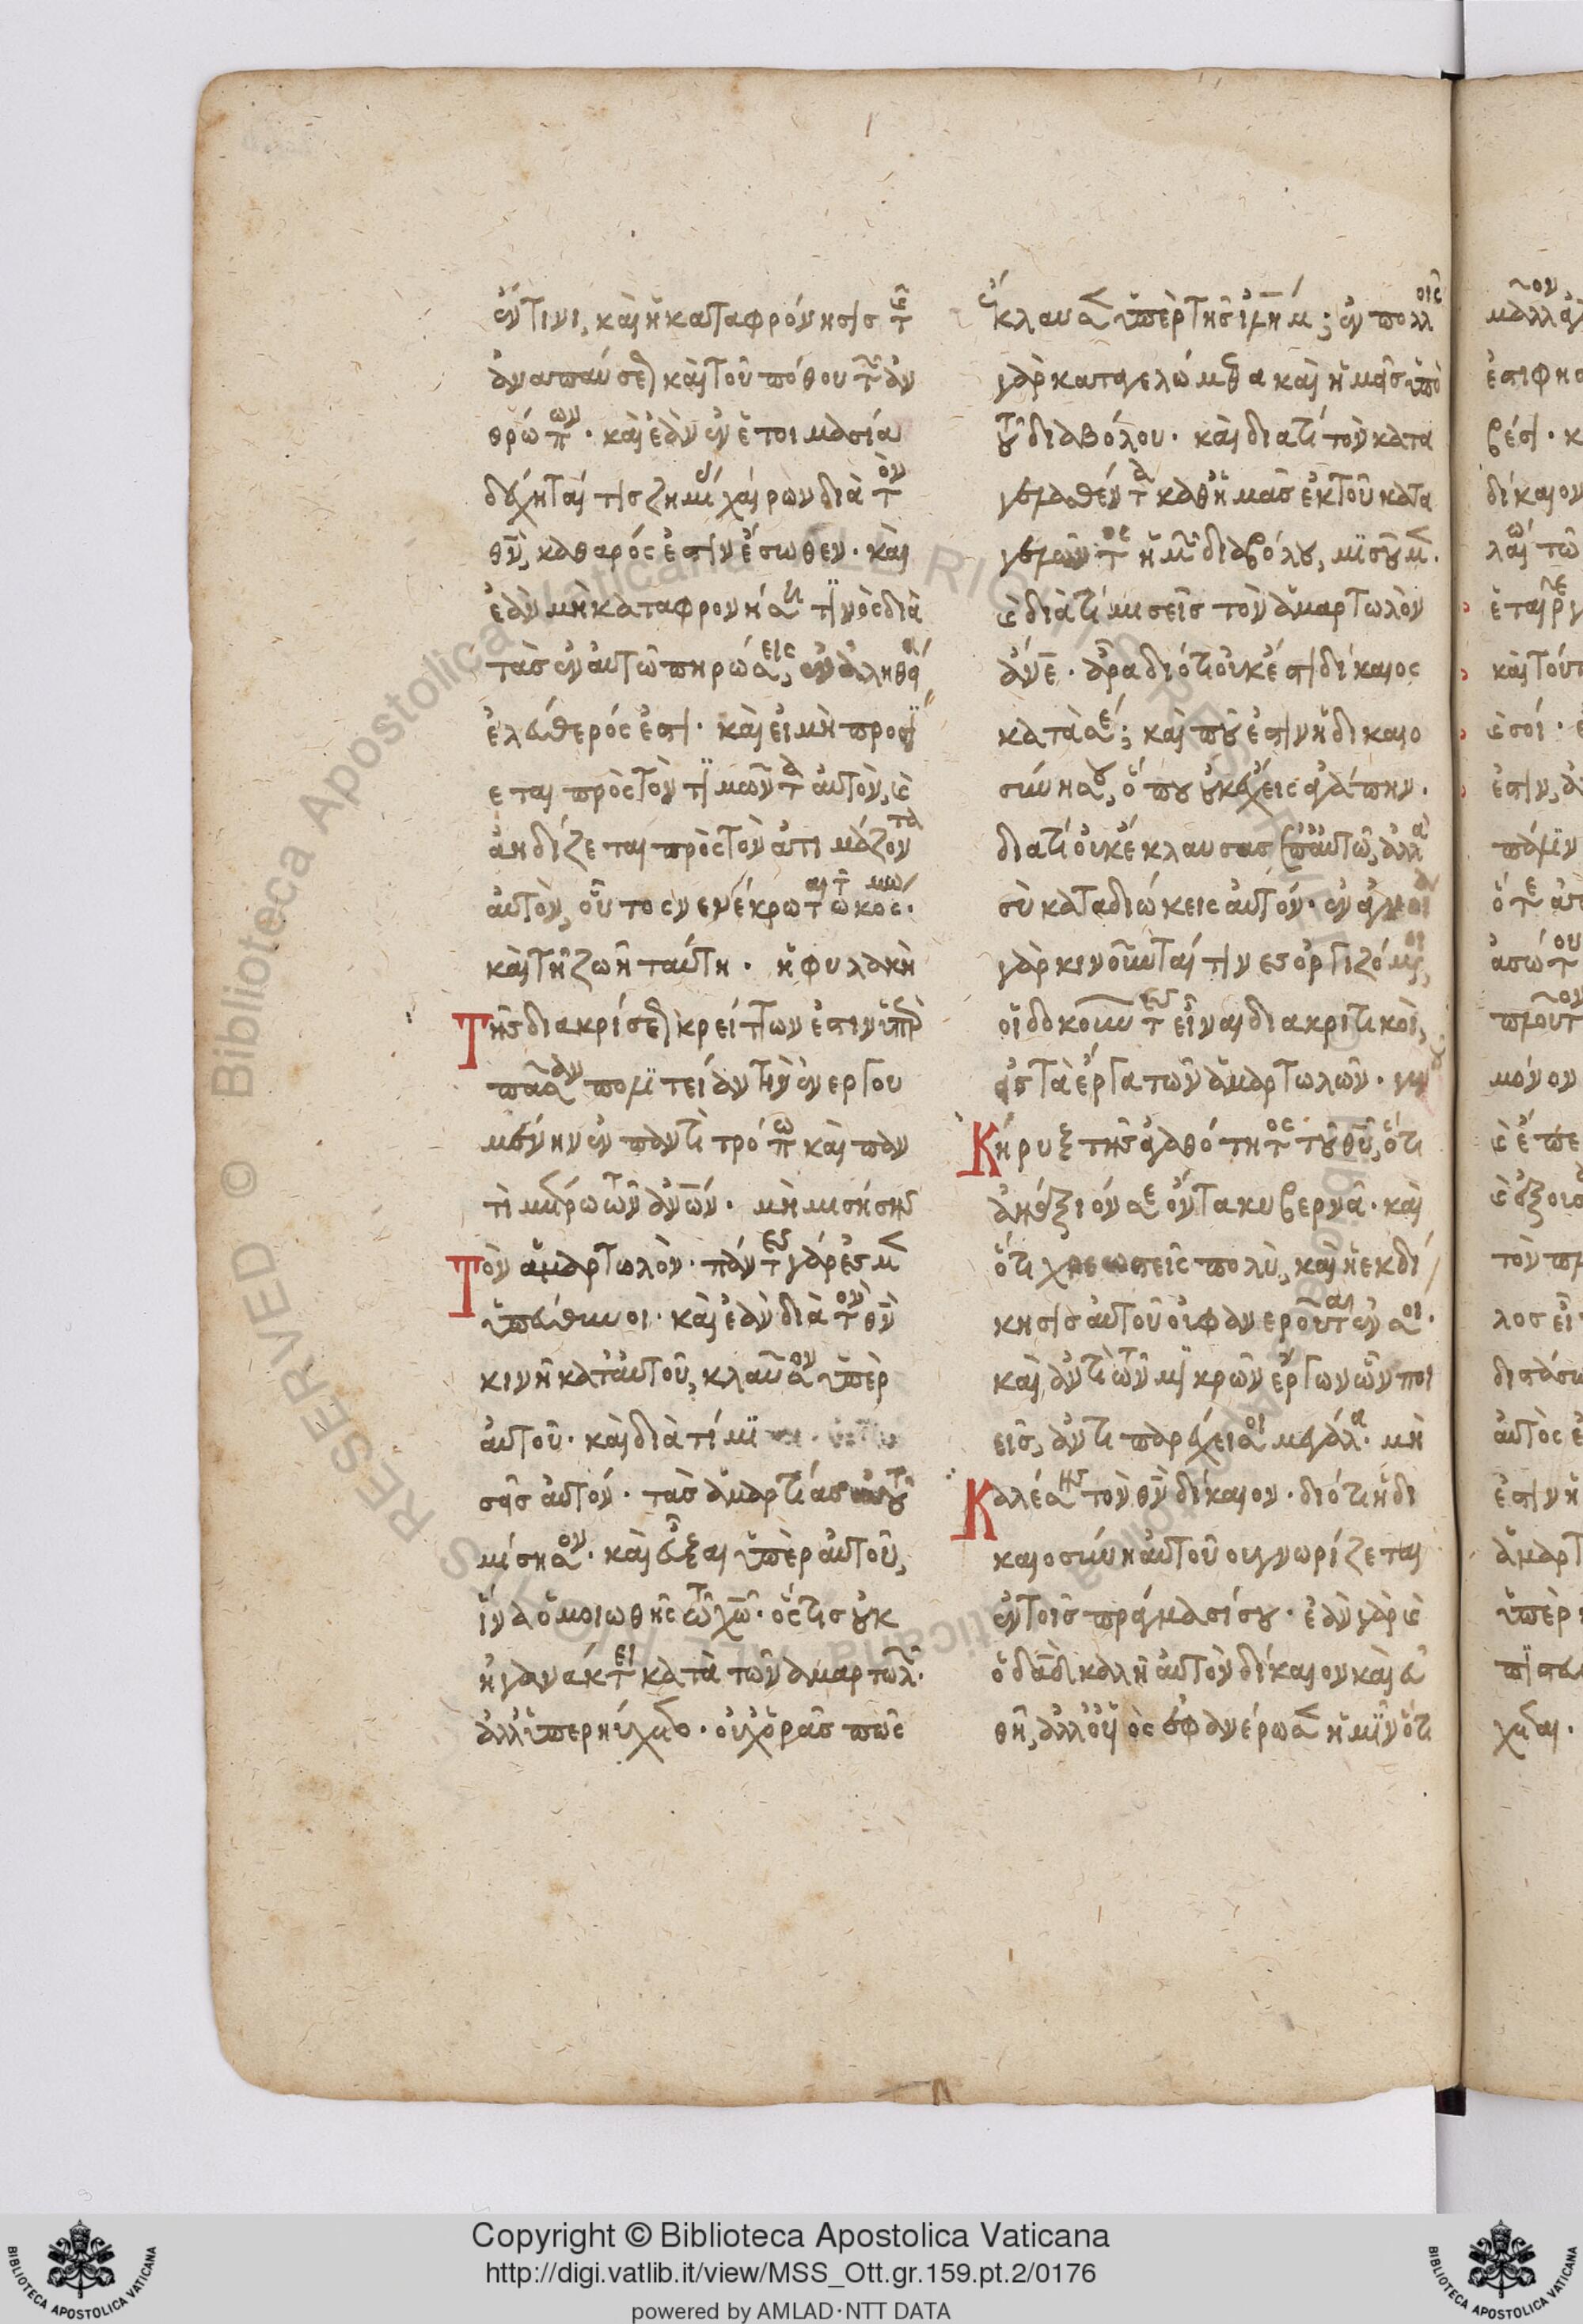 ἐν τινι, καὶ ἡ καταφρόνησις τῆς
ἀναπαύσεως καὶ τοῦ πόθου τῶν ἀν
θρώπων. καὶ ἐὰν ἐν ἑτοιμασίᾳ
δέχηταί τις ζημίαν χαίρων διὰ τὸν
θν̄, καθαρός ἐστιν ἔσωθεν. καὶ
ἐὰν μὴ καταφρονήσῃ τινὸς διὰ
τὰς ἐν αὐτῷ πηρώσεις, ἐν ἀληθείᾳ
ἐλεύθερός ἐστι. καὶ εἰ μὴ προσή
εται πρὸς τὸν τιμῶντα αὐτὸν, καὶ
ἀηδίζεται πρὸς τὸν ἀτιμάζοντα
αὐτὸν, οὗτος νενέκρωται τῷ κόσμῳ
καὶ τῇ ζωῇ ταύτῃ. ἡ φυλακὴ
Τῆς διακρίσεως κρείττων ἐστιν ὑπὲρ
πᾶσαν πολιτείαν τὴν ἐνεργου
μένην ἐν παντὶ τρόπῳ καὶ παν
τὶ μέτρῳ τῶν ἀνων̄. μὴ μισήσῃς
Τὸν ἁμαρτωλὸν. πάντες γάρ ἐσμεν
ὑπεύθυνοι. καὶ ἐὰν διὰ τὸν θν̄
κινῇ κατ' αὐτοῦ, κλαῦσον ὑπὲρ
αὐτοῦ. καὶ διὰ τί μι
σεῖς αὐτόν. τὰς ἁμαρτίας αὐτοῦ
μίσησον. καὶ εὖξαι ὑπὲρ αὐτοῦ,
ἵνα ὁμοιωθῇς τῷ χω̄. ὅστις οὐκ
ἠγανάκτει κατὰ τῶν ἁμαρτωλῶν.
ἀλλ' ὑπερηύχετο. οὐχ ὁρᾷς πῶς
ἔκλαυσεν ὑπὲρ τῆς ιλημ̄; ἐν πολλοῖς
γὰρ καταγελώμεθα καὶ ἡμεῖς ὑπὸ
τοῦ διαβόλου. καὶ διατί τὸν κατα
γελασθέντα καθ' ἡμᾶς ἐκ τοῦ κατα
γελῶντος ἡμῶν διαβόλου, μισοῦμεν.
καὶ διατί μισεῖς τὸν ἁμαρτωλὸν
ἄνε̄. ἆρα διότι οὐκ ἔστι δίκαιος
κατὰ σέ; καὶ ποῦ ἐστιν ἡ δικαιο
σύνη σου, ὅπου οὐκ ἔχεις ἀγάπην.
διατί οὐκ ἔκλαυσας ἐπ' αὐτῷ, ἀλλὰ
σὺ καταδιώκεις αὐτόν. ἐν ἀγνοίᾳ
γὰρ κινοῦνταί τινες ὀργιζόμενοι,
οἱ δοκοῦντες εἶναι διακριτικοὶ,
εἰς τὰ ἔργα τῶν ἁμαρτωλῶν.
Κήρυξ τῆς ἀγαθότητος τοῦ θῡ, ὅτι
ἀνάξιόν σε ὄντα κυβερνᾷ. καὶ
ὅτι χρεωστεῖς πολὺ, καὶ ἡ ἐκδί
κησις αὐτοῦ οὐ φανεροῦται ἐν σοί.
καὶ ἀντὶ τῶν μικρῶν ἔργων ὧν ποι
εῖς, ἀντιπαρέχει σοι μεγάλα. μὴ
Καλέσῃς τὸν θν̄ δίκαιον. διότι ἡ δι
καιοσύνη αὐτοῦ οὐ γνωρίζεται
ἐν τοῖς πράγμασί σου. ἐὰν γὰρ καὶ
ὁ δαδ̄ καλῇ αὐτὸν δίκαιον καὶ εὐ
θῆ, ἀλλ' ὁ υἱὸς ἐφανέρωσεν ἡμῖν ὅτι
Copyright © Biblioteca Apostolica Vaticana
http://digi.vatlib.it/view/MSS_Ott.gr.159.pt.2/0176
powered by AMLAD·NTT DATA